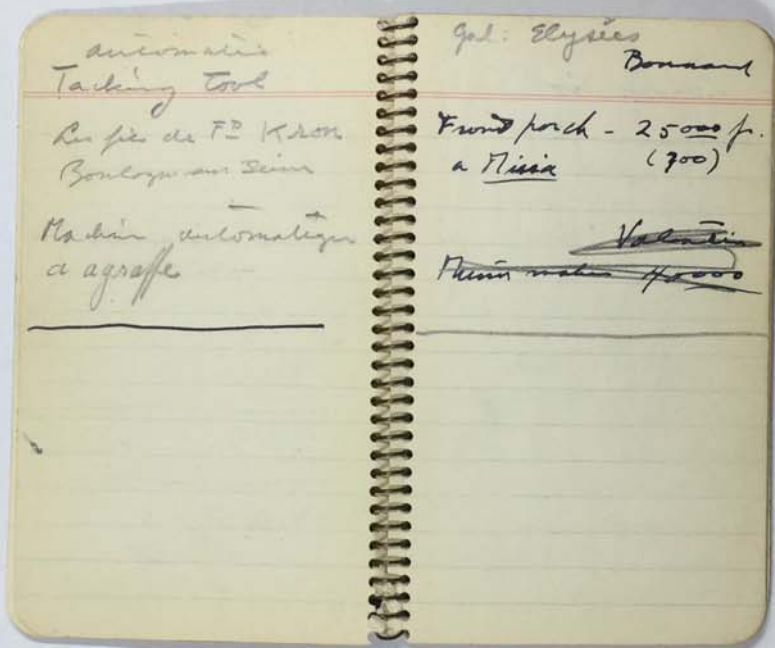 automatic
Tacking Tool
Les fils de Fd Kron
Boulogne sur Seine
Machine automatique
a agraffe
Gal: Elysées
Bonnard
Front porch - 25000 fr.
a Missia (700)
Valentin
40000